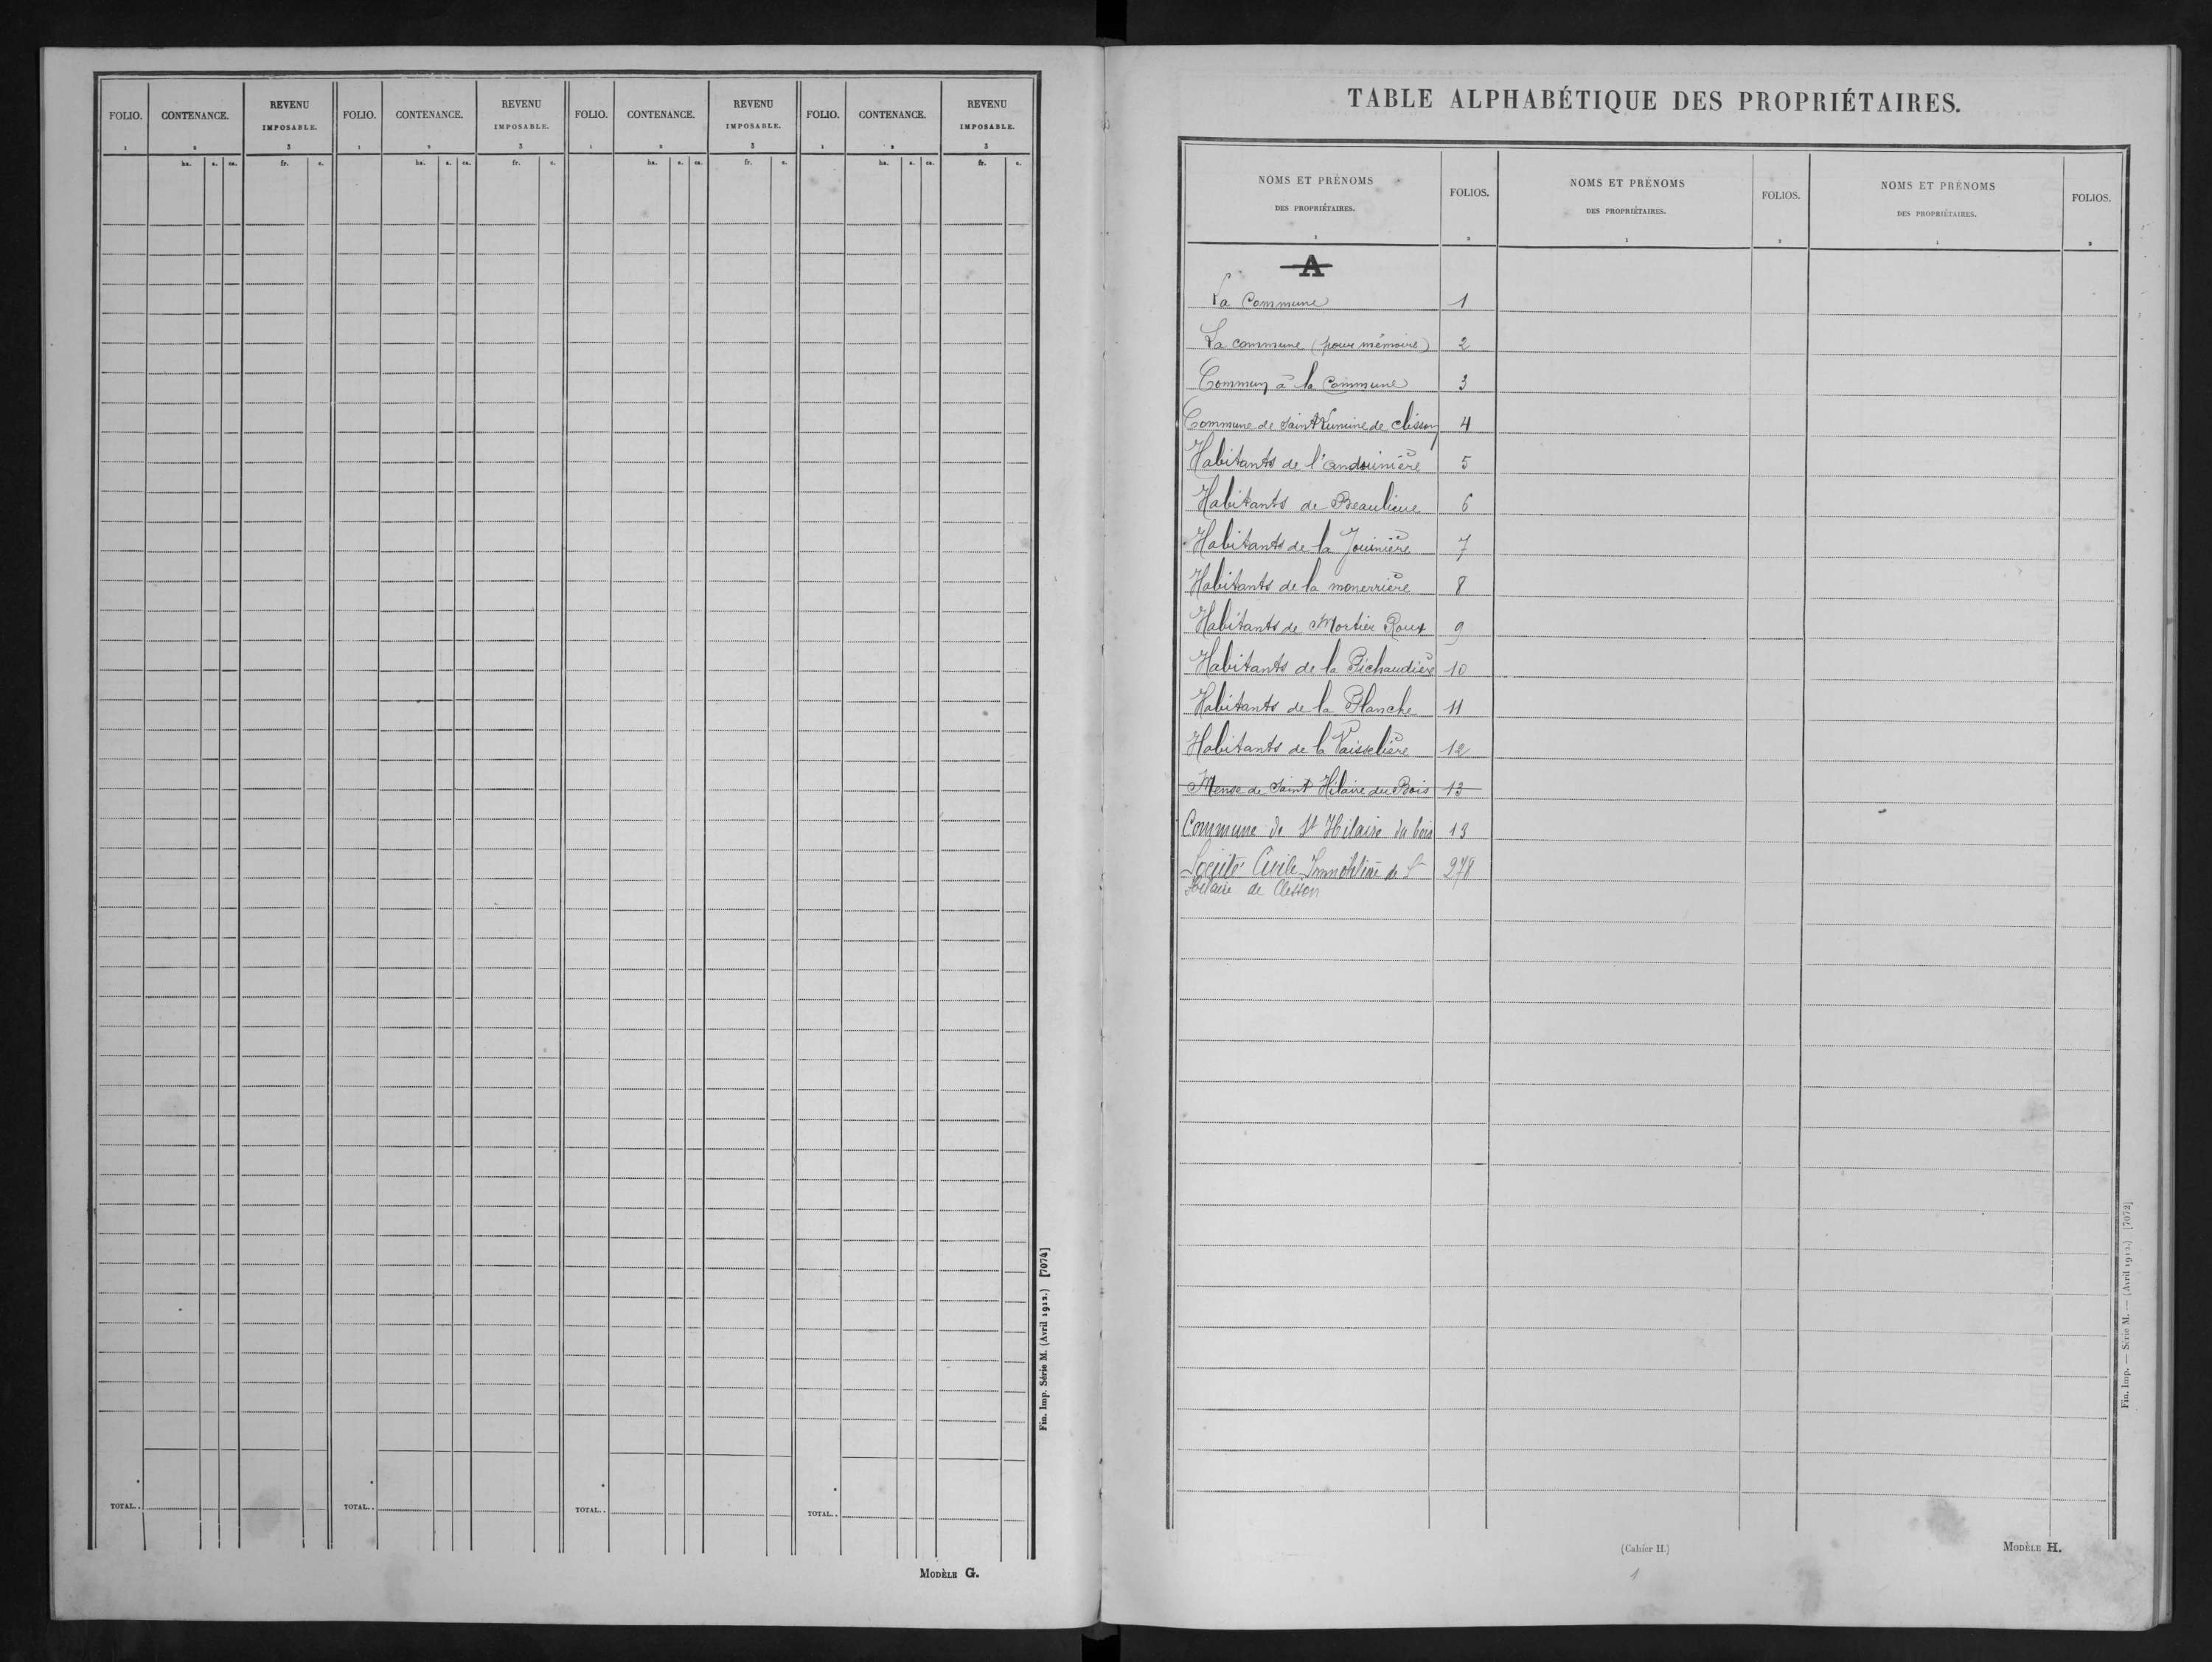 FOLIO. CONTENANCE. REVENU IMPOSABLE. FOLIO. CONTENANCE. REVENU IMPOSABLE. FOLIO. CONTENANCE. REVENU IMPOSABLE. FOLIO. CONTENANCE. REVENU IMPOSABLE.
1 2 3 1 2 3 1 2 3 1 2 3
ha. a. ca. fr. c. ha. a. ca. fr. c. ha. a. ca. fr. c. ha. a. ca. fr. c.
TOTAL.. TOTAL.. TOTAL.. TOTAL..
Fin. Imp. Série M. (Avril 1912.) [7074]
MODÈLE G.
TABLE ALPHABÉTIQUE DES PROPRIÉTAIRES.
NOMS ET PRÉNOMS DES PROPRIÉTAIRES. FOLIOS. NOMS ET PRÉNOMS DES PROPRIÉTAIRES. FOLIOS. NOMS ET PRÉNOMS DES PROPRIÉTAIRES. FOLIOS.
1 2 1 2 1 2
A
La Commune 1
La commune (pour mémoire) 2
Commun à la Commune 3
Commune de Saint Lumine de Clisson 4
Habitants de l'andouinière 5
Habitants de Beaulieue 6
Habitants de la Jouinière 7
Habitants de la monerrière 8
Habitants de Mortier Roux 9
Habitants de la Pichaudière 10
Habitants de la Planche 11
Habitants de la Vaisselière 12
Mense de Saint Hilaire du Bois 13
Commune de St Hilaire du bois 13
Société Civile Immobilière de St 278
Hilaire de Clisson
(Cahier H.)
1
MODÈLE H.
Fin. Imp. — Série M. — (Avril 1912.) [7072]